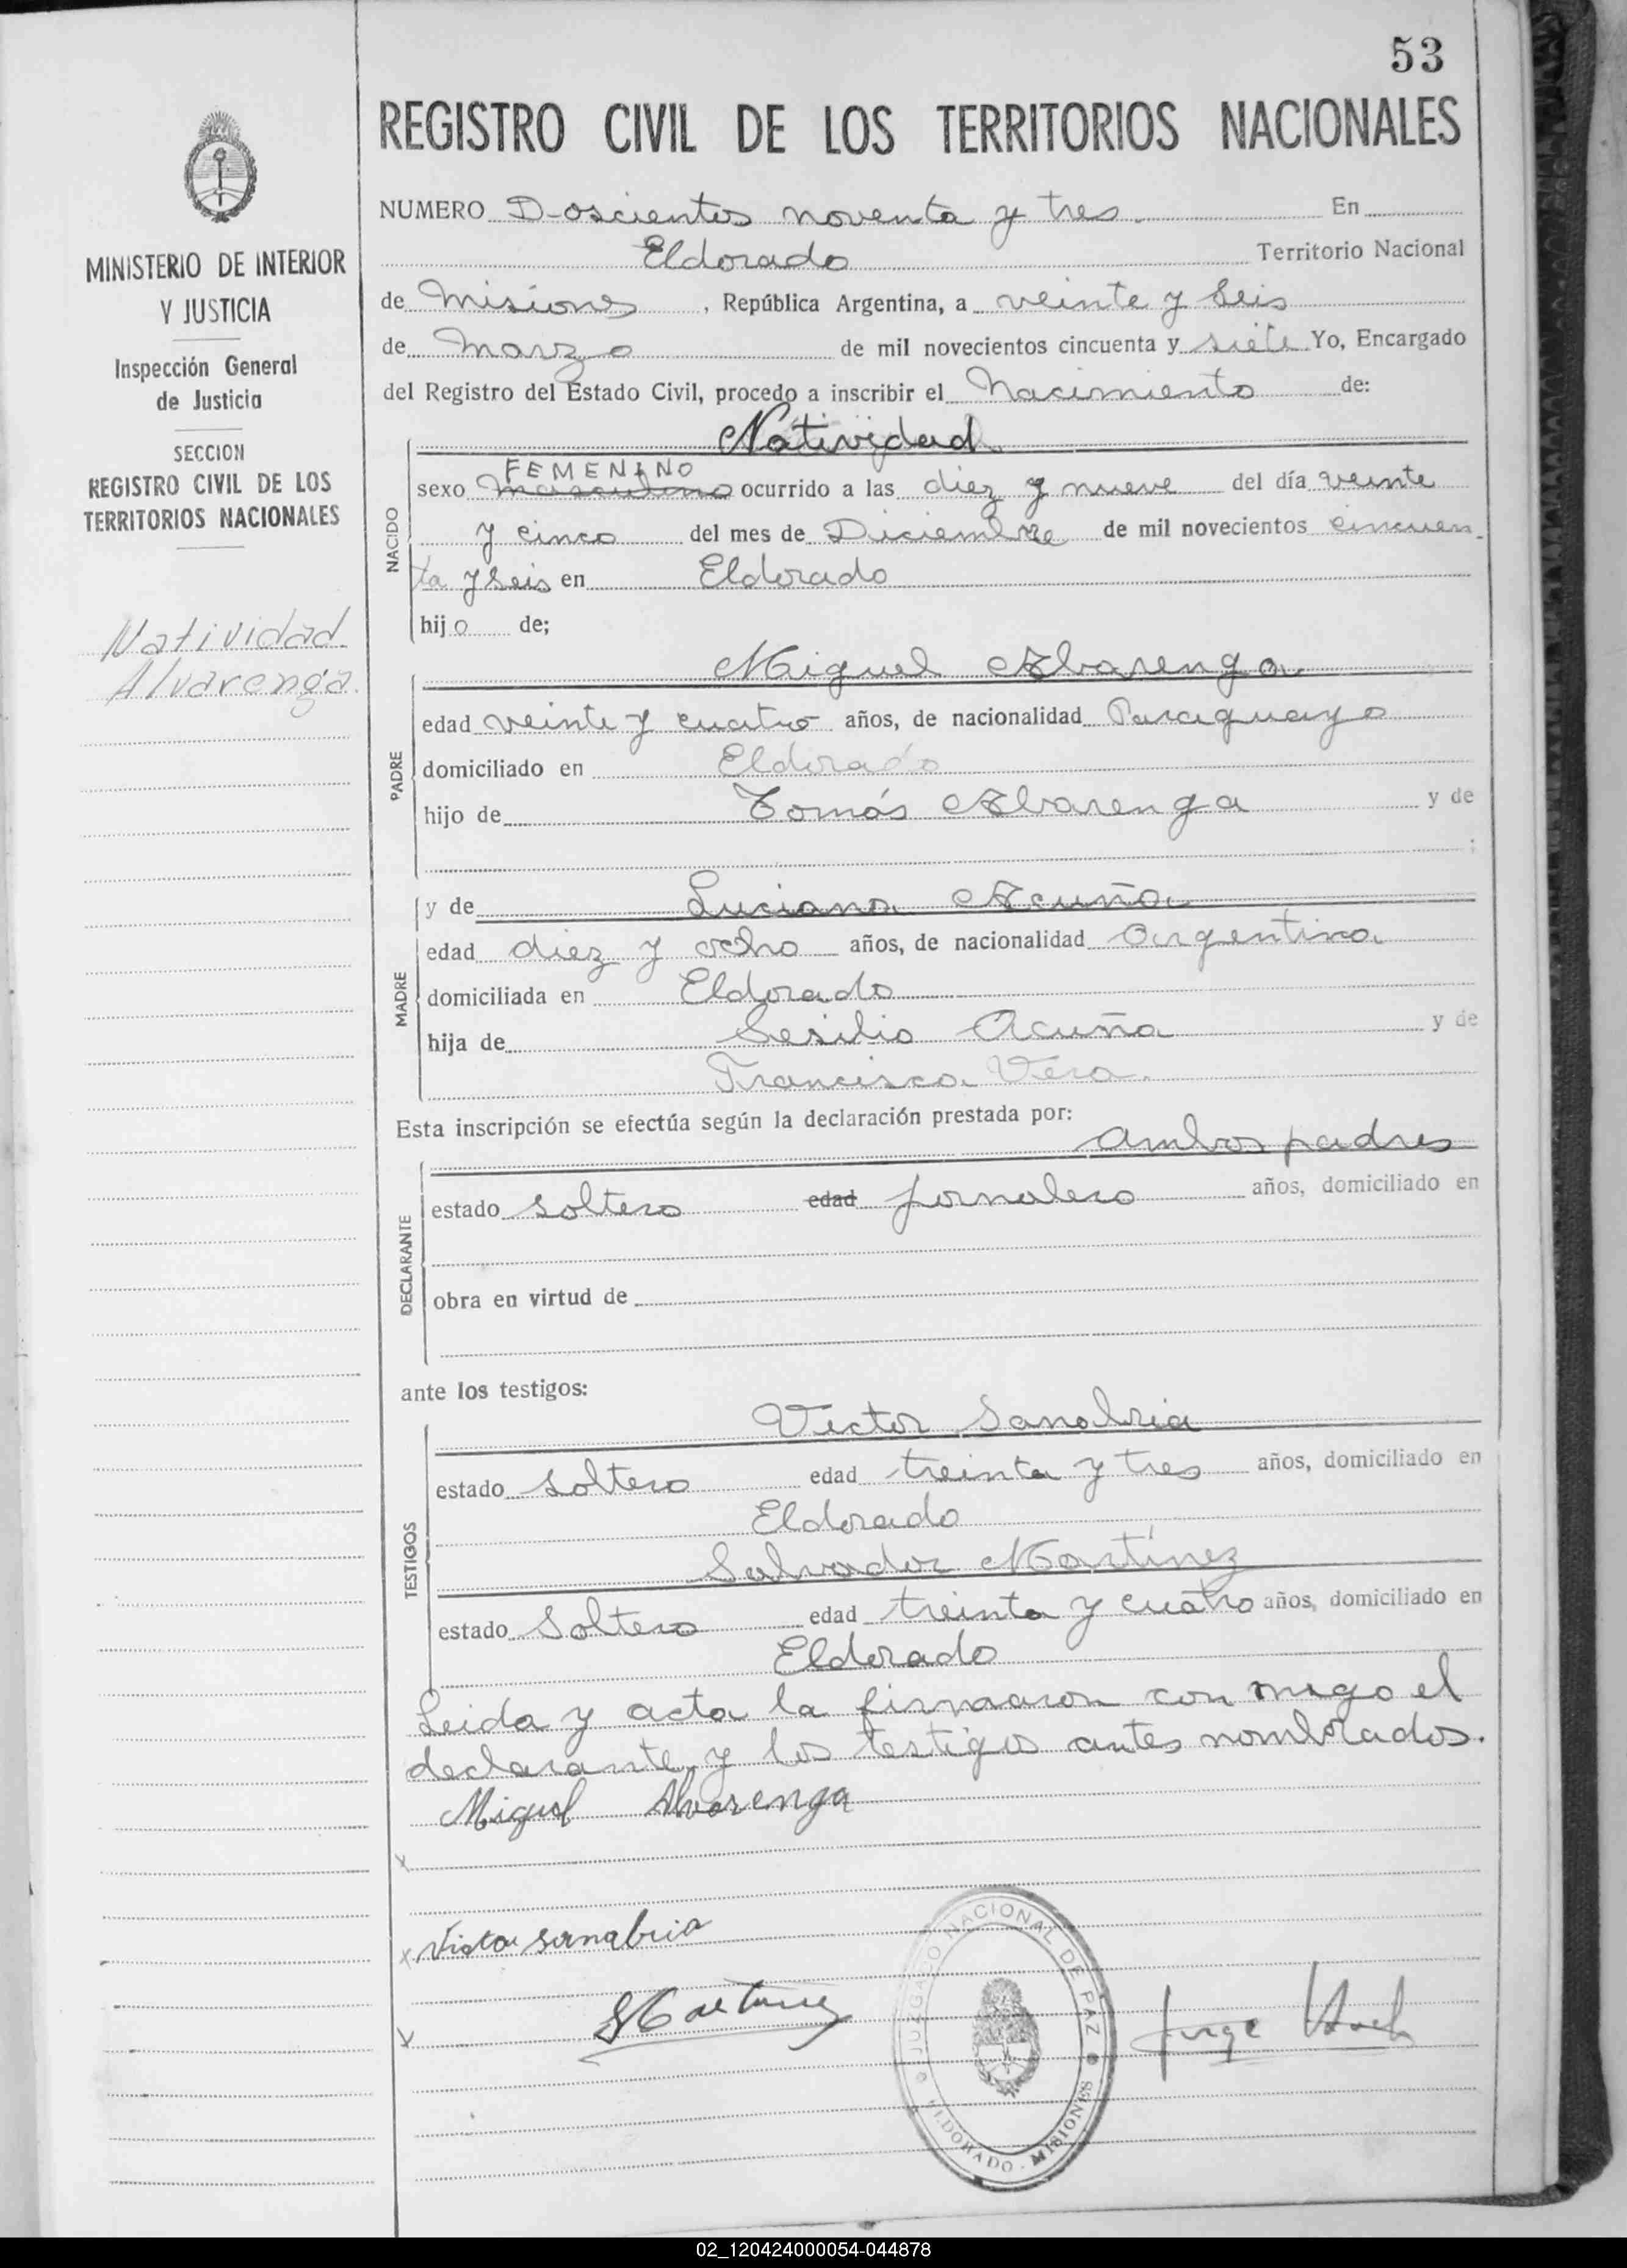 53
REGISTRO CIVIL DE LOS TERRITORIOS NACIONALES
MINISTERIO DE INTERIOR
Y JUSTICIA
Inspección General
de Justicia
SECCION
REGISTRO CIVIL DE LOS
TERRITORIOS NACIONALES
Natividad
Alvarenga.
NUMERO Doscientos noventa y tres. En
Eldorado Territorio Nacional
de Misiones, República Argentina, a veinte y seis
de Marzo de mil novecientos cincuenta y siete Yo, Encargado
del Registro del Estado Civil, procedo a inscribir el Nacimiento de:
NACIDO
Natividad
FEMENINO
sexo masculino ocurrido a las diez y nueve del día veinte
y cinco del mes de Diciembre de mil novecientos cincuen
ta y seis en Eldorado
hijo de;
PADRE
Miguel Alvarenga
edad veinte y cuatro años, de nacionalidad Paraguayo
domiciliado en Eldorado
hijo de Tomás Alvarenga y de
;
MADRE
y de Luciana Acuña
edad diez y ocho años, de nacionalidad argentina
domiciliada en Eldorado
hija de Sesilio Acuña y de
Francisca Vera.
Esta inscripción se efectúa según la declaración prestada por:
ambos padres
DECLARANTE
estado soltero edad jornalero años, domiciliado en
obra en virtud de
ante los testigos:
TESTIGOS
Victor Sanabria
estado soltero edad treinta y tres años, domiciliado en
Eldorado
Salvador Martínez
estado Soltero edad treinta y cuatro años, domiciliado en
Eldorado
Leida y acta la firmaron con migo el
declarante y los testigos antes nombrados.
Miguel Alvarenga
x
x Victor sanabria
x
SMartinez
Jorge
JUZGADO NACIONAL DE PAZ
ELDORADO - MISIONES
02_120424000054-044878